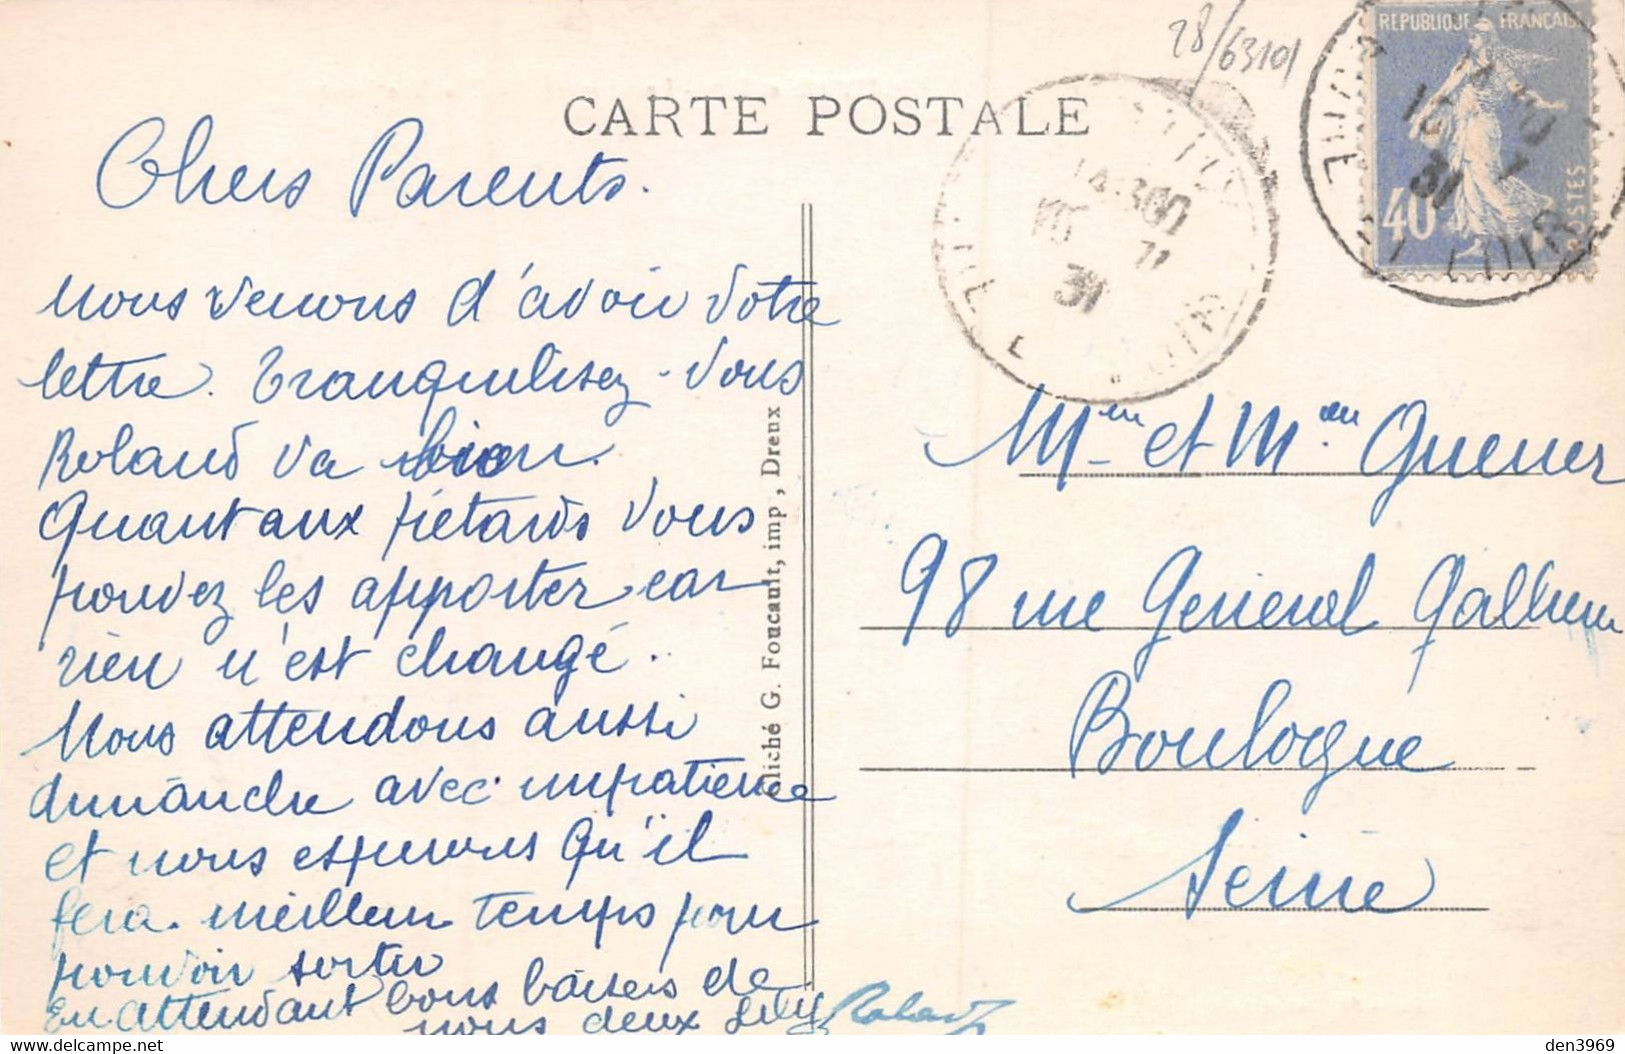 28/63101
REPUBLIQUE FRANÇAISE
40c
POSTES
CARTE POSTALE
14 30
10 7
31
Chers Parents.
Nous venons d'avoir votre
lettre. Tranquilisez-vous
Roland va bien.
Quant aux pétards vous
pouvez les apporter car
rien n'est changé.
Nous attendons aussi
dimanche avec impatience
et nous esperons qu'il
fera meilleur temps pour
pouvoir sortir
En attendant bons baisers de
nous deux Lily Roland
Cliché G. Foucault, imp, Dreux
et
98 rue General
Boulogne
Seine
den3969